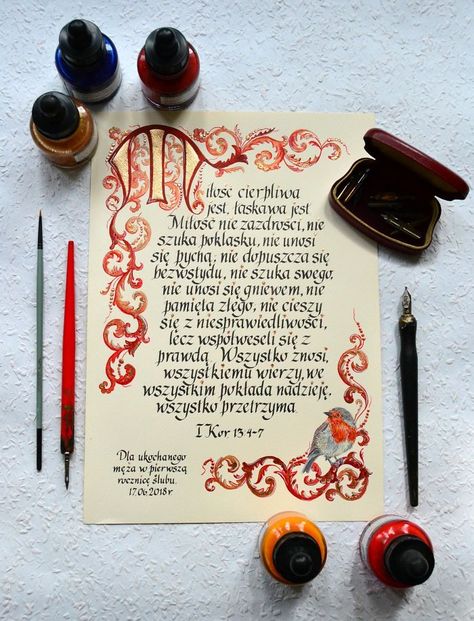 Miłość cierpliwa
jest, łaskawa jest.
Miłość nie zazdrości, nie
szuka poklasku, nie unosi
się pychą, nie dopuszcza się
bezwstydu, nie szuka swego,
nie unosi się gniewem, nie
pamięta złego, nie cieszy
się z niesprawiedliwości,
lecz współweseli się z
prawdą. Wszystko znosi,
wszystkiemu wierzy, we
wszystkim pokłada nadzieję,
wszystko przetrzyma.
I Kor 13:4-7
Dla ukochanego
męża w pierwszą
rocznicę ślubu.
17.06.2018r